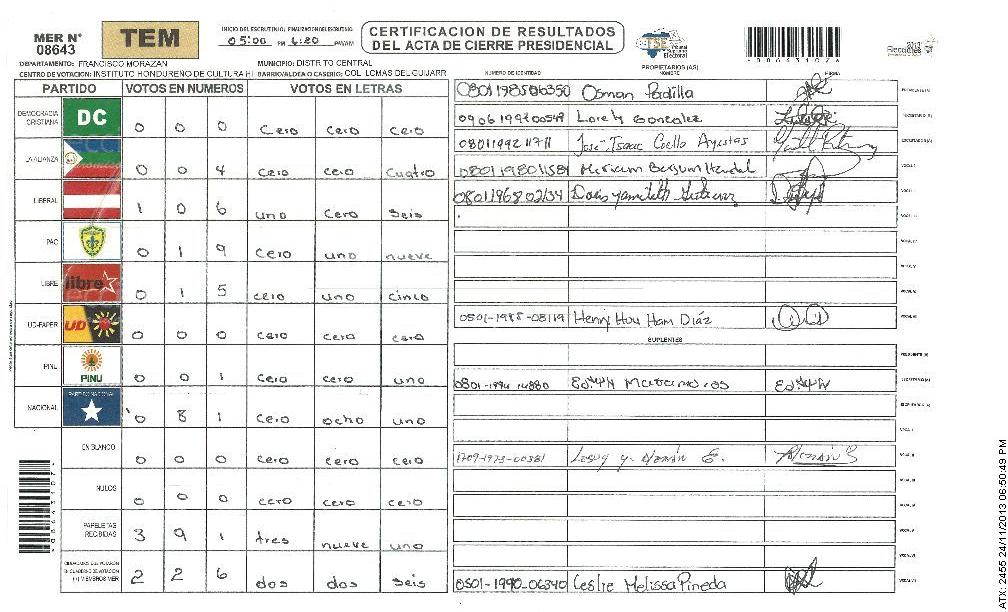 MER Nº
08643
TEM
INICIO DEL ESCRUTINIO: FINALIZACION DEL ESCRUTINIO
05:00 PM 6:20 PM/AM
CERTIFICACION DE RESULTADOS
DEL ACTA DE CIERRE PRESIDENCIAL
TSE Tribunal Supremo Electoral
Elecciones 2013
DEPARTAMENTO: FRANCISCO MORAZAN MUNICIPIO: DISTRITO CENTRAL
CENTRO DE VOTACION: INSTITUTO HONDUREÑO DE CULTURA HI BARRIO/ALDEA O CASERIO: COL. LOMAS DEL GUIJARR
PROPIETARIOS (AS)
NUMERO DE IDENTIDAD NOMBRE FIRMA
PARTIDO VOTOS EN NUMEROS VOTOS EN LETRAS
DEMOCRACIA CRISTIANA DC 0 0 0 Cero cero cero
LA ALIANZA 0 0 4 cero cero cuatro
LIBERAL 1 0 6 uno cero seis
PAC 0 1 9 cero uno nueve
LIBRE libre 0 1 5 cero uno cinco
UD-FAPER UD 0 0 0 cero cero cero
PINU PINU 0 0 1 cero cero uno
NACIONAL PARTIDO NACIONAL 0 8 1 cero ocho uno
EN BLANCO 0 0 0 cero cero cero
NULOS 0 0 0 cero cero cero
PAPELETAS RECIBIDAS 3 9 1 tres nueve uno
2 2 6 dos dos seis
Osman Padilla
Lorely Gonzalez
0801 1992 11711 José Isaac Coello
Doris Yamileth Gutierrez
0501-1985-08119 Henry Hou Ham Díaz
SUPLENTES
0801-1994 14880
1709-1973-00381
0501-1990-06340 Leslie Melissa Pineda
ATX: 2455 24/11/2013 06:50:49 PM